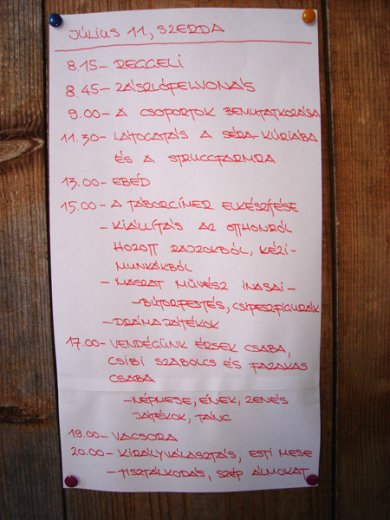 JÚLIUS 11., SZERDA
8.15- REGGELI
8.45- ZÁSZLÓFELVONÁS
9.00- A CSOPORTOK BEMUTATKOZÁSA
11.30- LÁTOGATÁS A SÉRA-KÚRIÁBA
ÉS A STRUCCFARMRA
13.00- EBÉD
15.00- A TÁBORCÍMER ELKÉSZÍTÉSE
- KIÁLLÍTÁS AZ OTTHONRÓL
HOZOTT RAJZOKBÓL, KÉZI-
MUNKÁKBÓL
- MASZAT MŰVÉSZ INASAI-
-BÚTORFESTÉS, CSIPESZFIGURÁK
-DRÁMAJÁTÉKOK
17.00- VENDÉGÜNK ÉRSEK CSABA,
CSIBI SZABOLCS ÉS FAZAKAS
CSABA
-NÉPMESE, ÉNEK, ZENÉS
JÁTÉKOK, TÁNC
19.00- VACSORA
20.00- KIRÁLYVÁLASZTÁS, ESTI MESE
-TISZTÁLKODÁS, SZÉP ÁLMOKAT